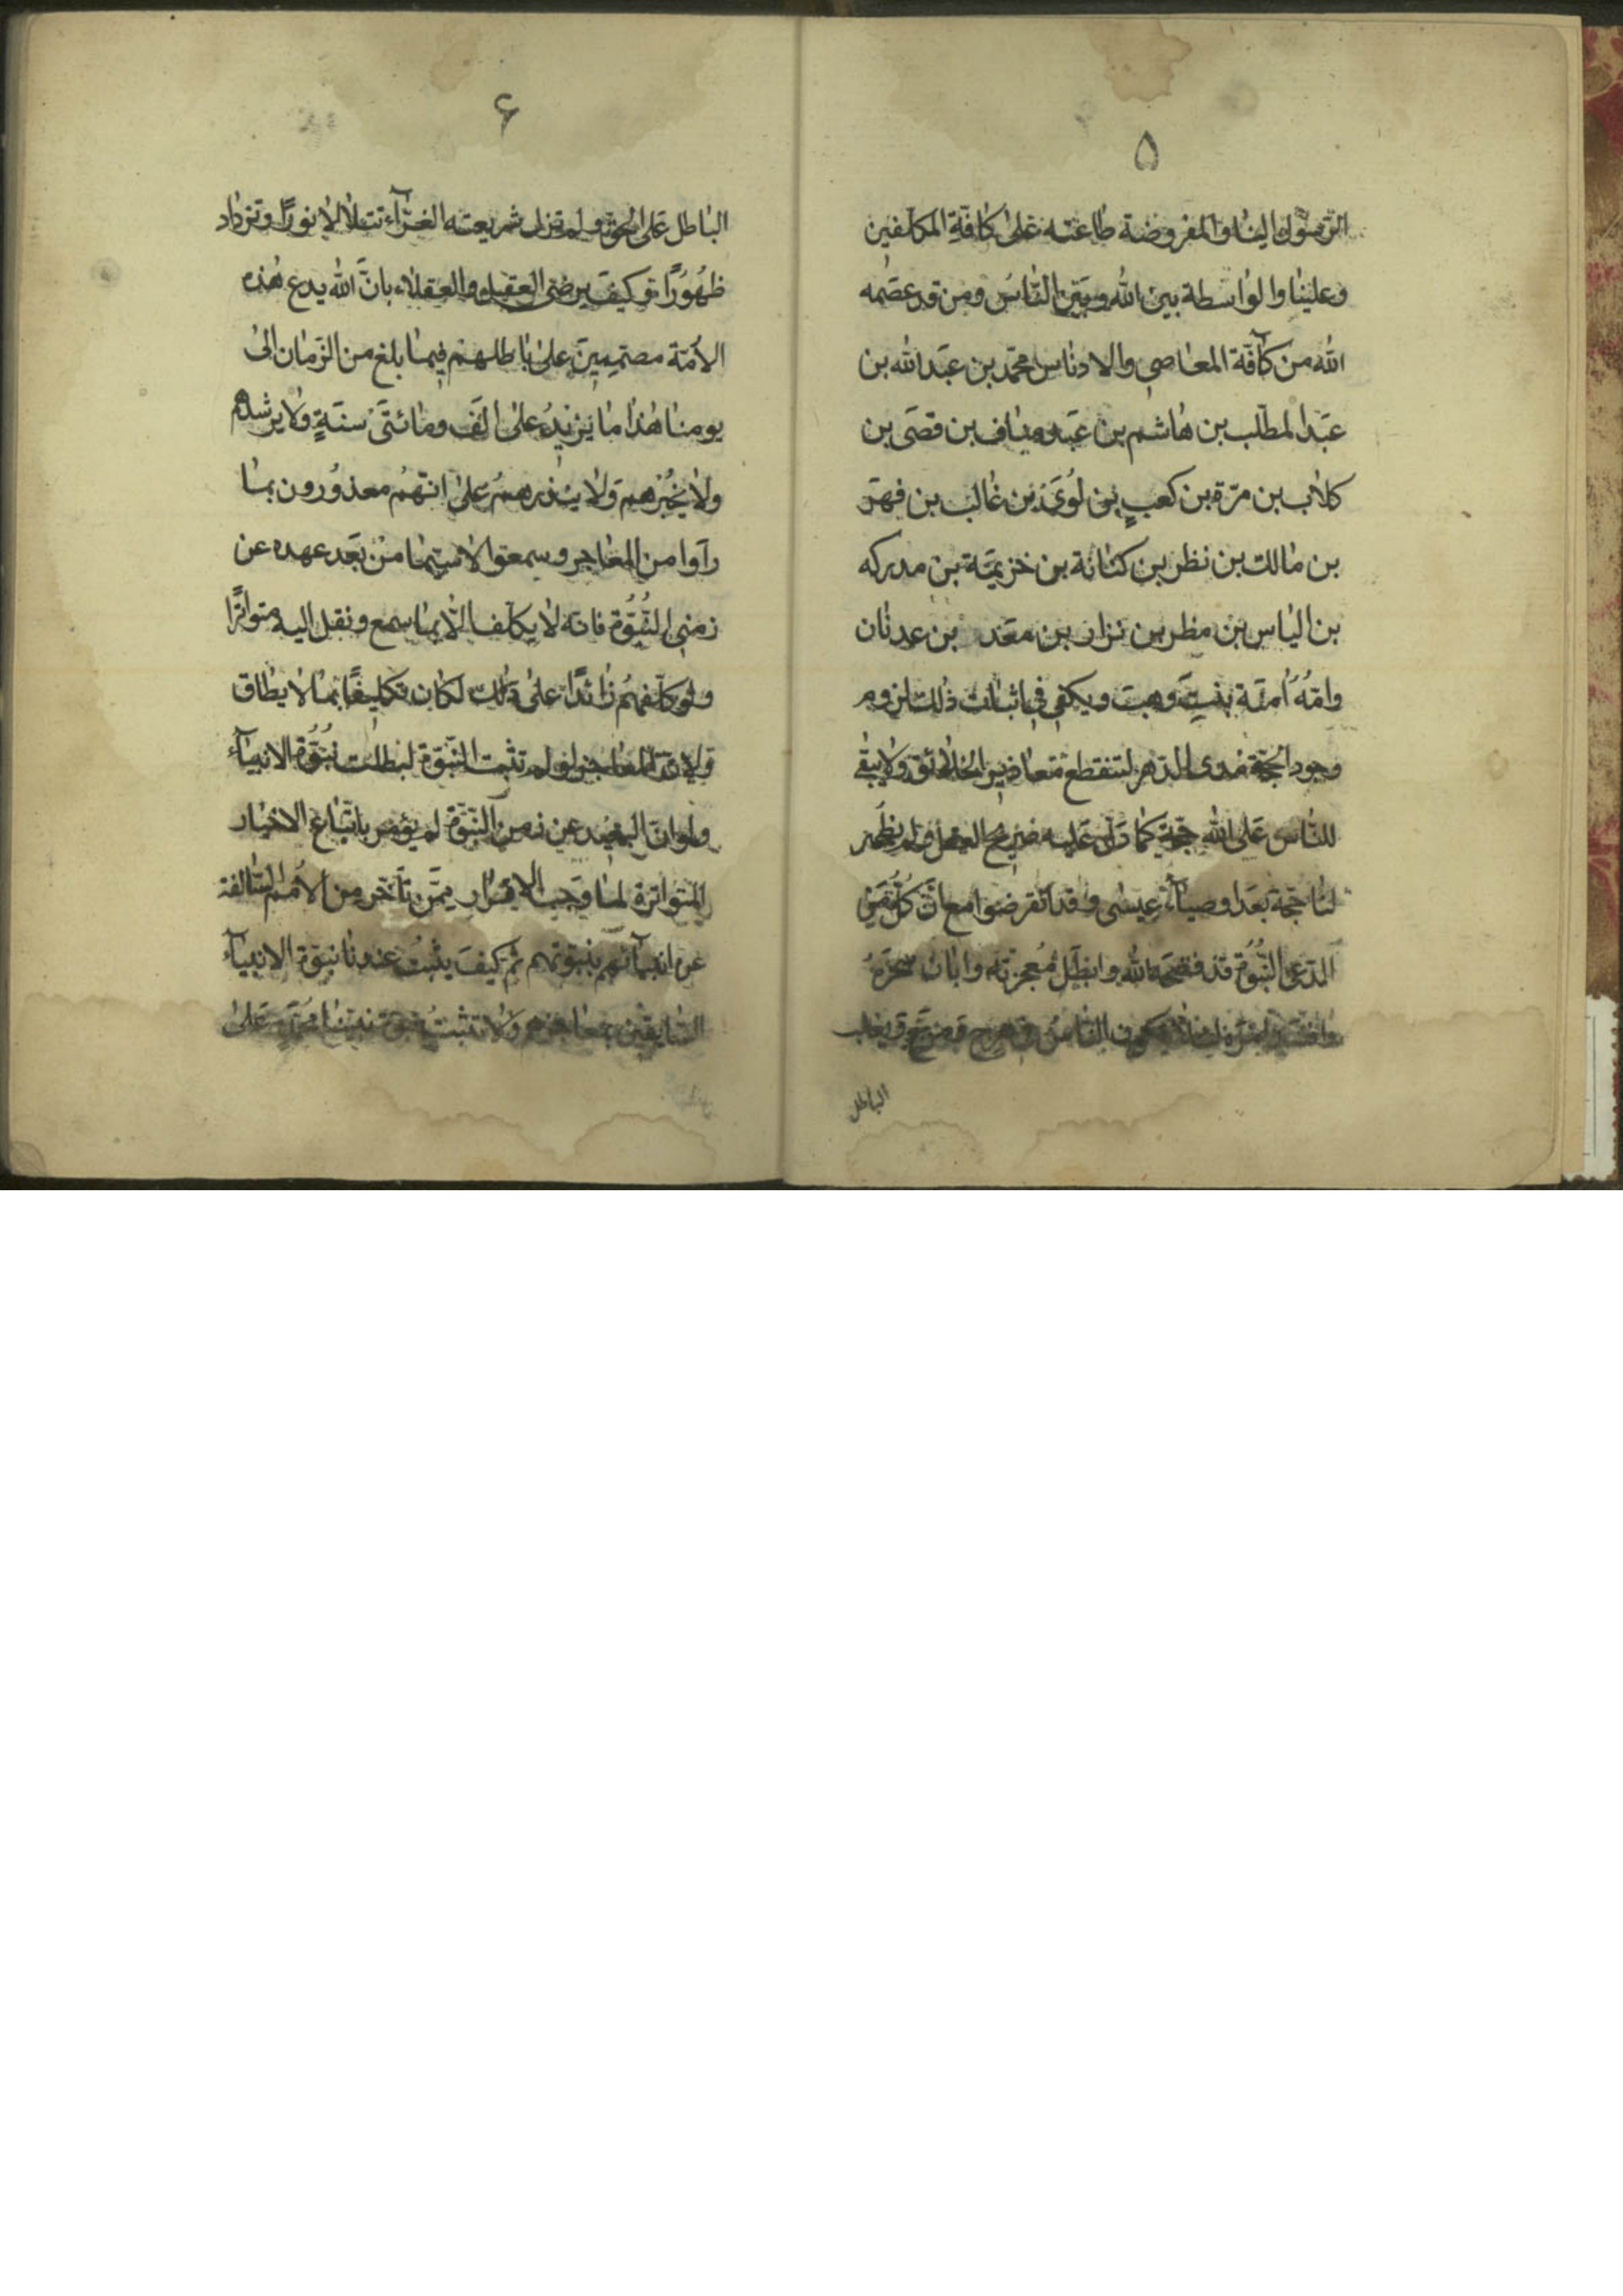 ۵
الرّسول الینا والمفروضة طاعته علی کافّة المکلّفین
وعلینا والواسطة بین الله وبین النّاس ومن قد عصمه
الله من کآفّة المعاصی والادناس محمّد بن عبد الله بن
عبد المطّلب بن هاشم بن عبد مناف بن قصی بن
کلاب بن مرّة بن کعبٍ بن لُوَیّ بن غالب بن فهر
بن مالك بن نظر بن کنانة بن خزیمة بن مدرکه
بن الیاس بن مظر بن نزار بن معد بن عدنان
وامّهُ اٰمنة بنت وهب ویکفی فی اثبات ذلك لزوم
وجود الحجّة مدی الدّهر لتنقطع معاذیر الخلائق ولا یبقی
للنّاس علی الله حجّة کما دلّ علیه صریح العقل ولم یظهر
لنا حجّة بعد اوصیآء عیسی وقد انقرضوا مع انّ کلّ من
ادّعی النّبُوّة قد فضحه الله وابطل مُعجزته وابان سحره
لئلّا یکون النّاس فی هرج ومرج ویغلب
الباطل
۶
الباطل علی الحق ولم تزل شریعته الغرّآء تتلألأ نورًا وتزداد
ظُهُورًا وکیف یرضی العقل والعقلاء بانّ الله یدع هٰذه
الأمّة مصمّمین علی باطلهم فیما بلغ من الزّمان الی
یومنا هٰذا ما یزیدُ علی الف ومائتی سنةٍ ولا یرشدهم
ولا یخبرهم ولا ینذرهم علی انّهم معذُورون بما
رآوا من المعاجز وسمعوا لا سیّما من بَعُد عهده عن
زمنی النُّبُوّة فانّه لا یکلّف الّا بما سمع ونقل الیه متواترًا
ولو کلّفهم زائدًا علی ذلك لکان تکلیفًا بما لا یطاق
ولانّ المعاجز لو لم تثبت النّبوّة لبطلت نُبُوّة الانبیآء
ولو انّ البعید عن زمن النّبوّة لم یؤمر باتّباع الاخبار
المتواترة لما وجب الاقرار ممّن تأخّر من الأمم السّالفة
عن انبیآئهم بنبوّتهم ثم کیف یثبتُ عندنا نبوّة الانبیآء
السّابقین بمعاجزهم ولا تثبتُ نبوّة نبیّنا محمّدٍ علی